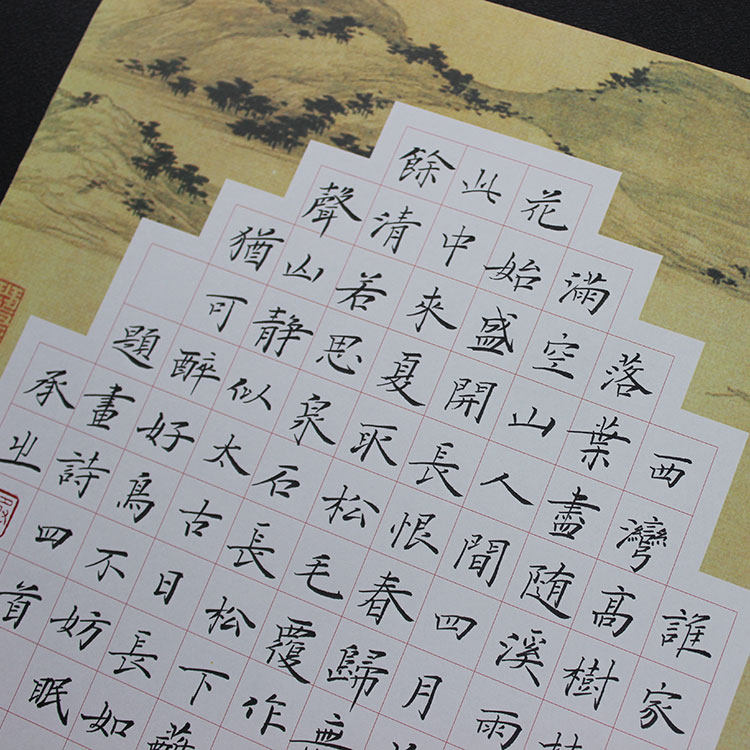 誰家
西灣高樹
落葉盡隨溪雨
滿空山人間四月
花始盛開長恨春歸無
此中來夏取松毛覆作
餘清若思泉石長松下
聲山靜似太古日長如
猶可醉好鳥不妨眠
題畫詩四首
承之